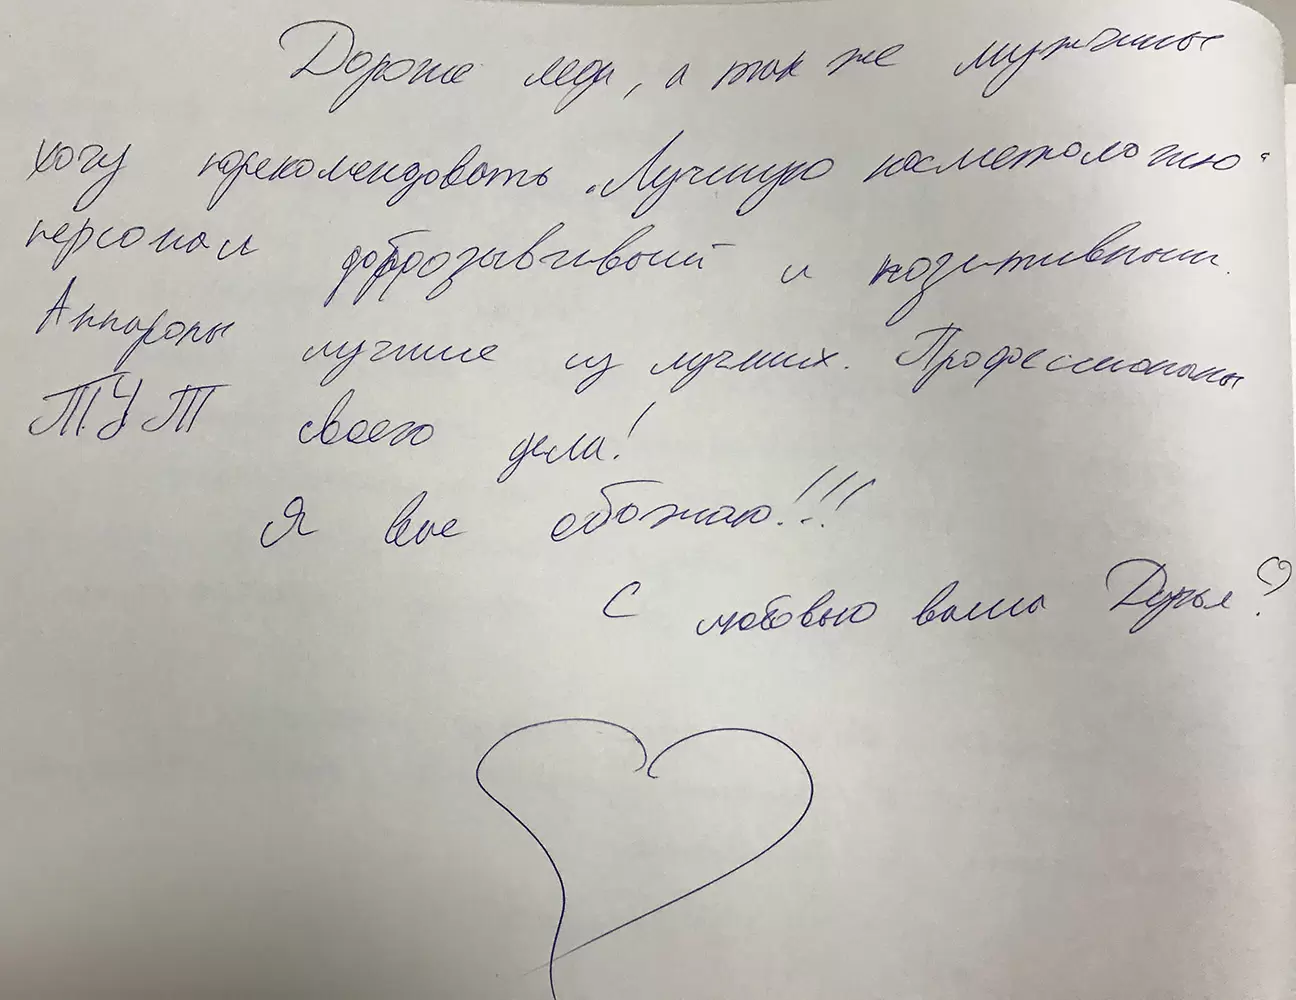 Дорогие леди, а так же мужчины
хочу порекомендовать "Лучшую косметологию"
персонал доброзывчивый и позитивный.
Аппараты лучшие из лучших. Профессионалы
ТУТ своего дела!
Я вас обожаю!!!
С любовью ваша Дарья